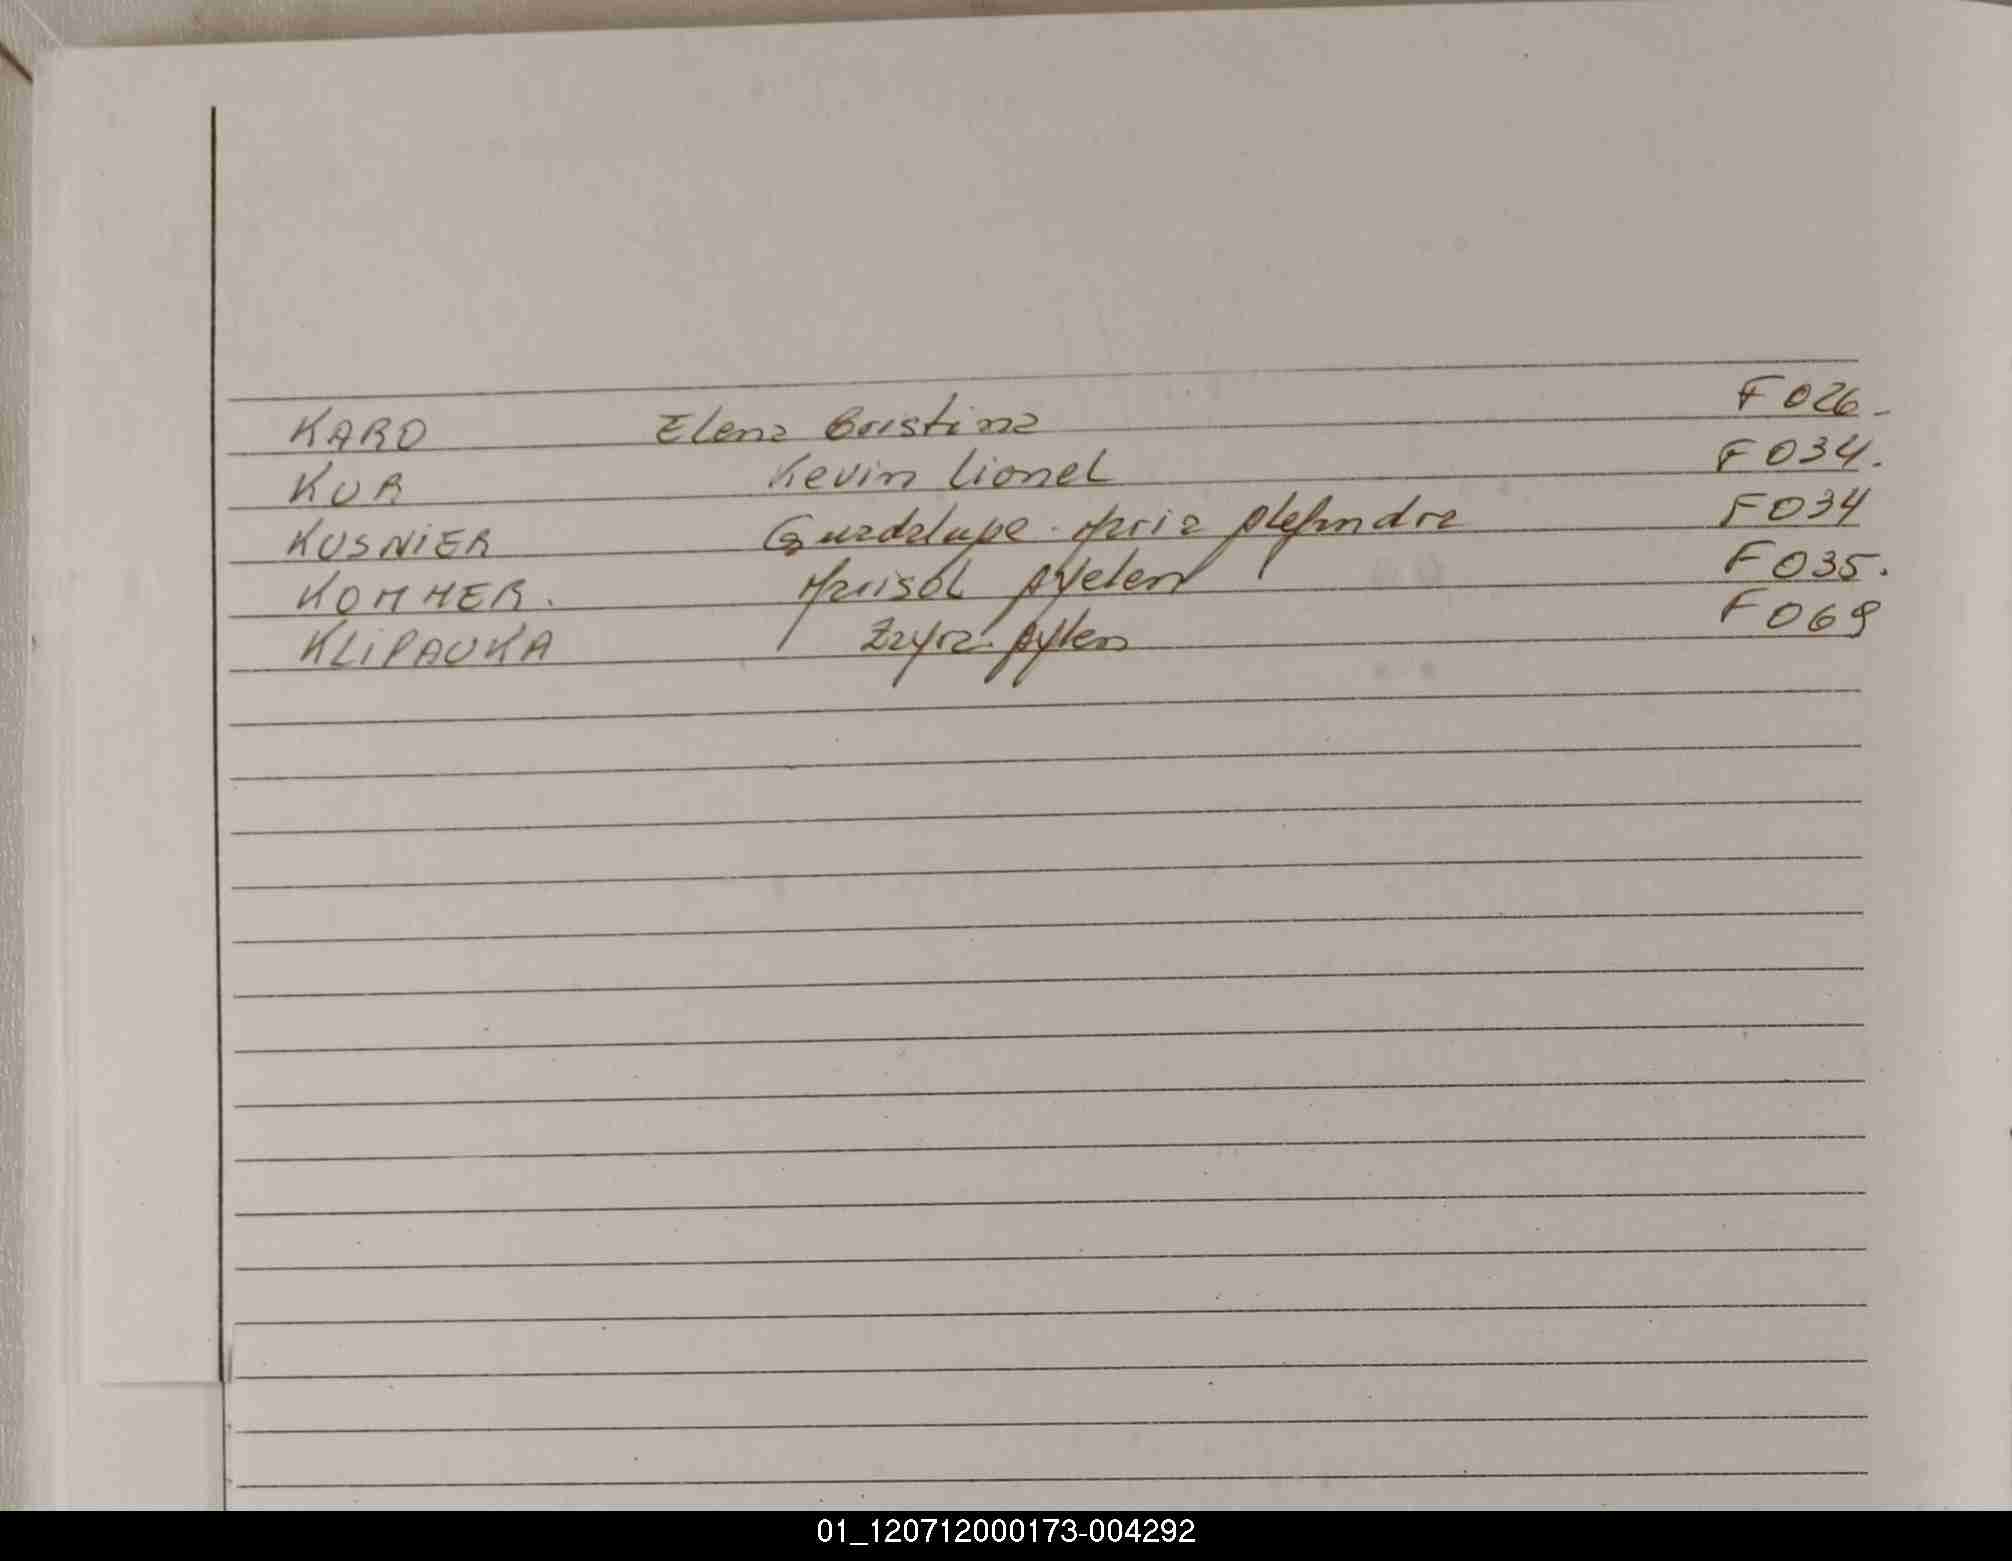 KARO Elena Cristina F 026.
KUR Kevin Lionel F 034.
KUSNIER Guadalupe Maria Alejandra F 034
KOMMER. Marisol Ayelen F 035.
KLIPAUKA Zayra Aylen F 069
01_120712000173-004292